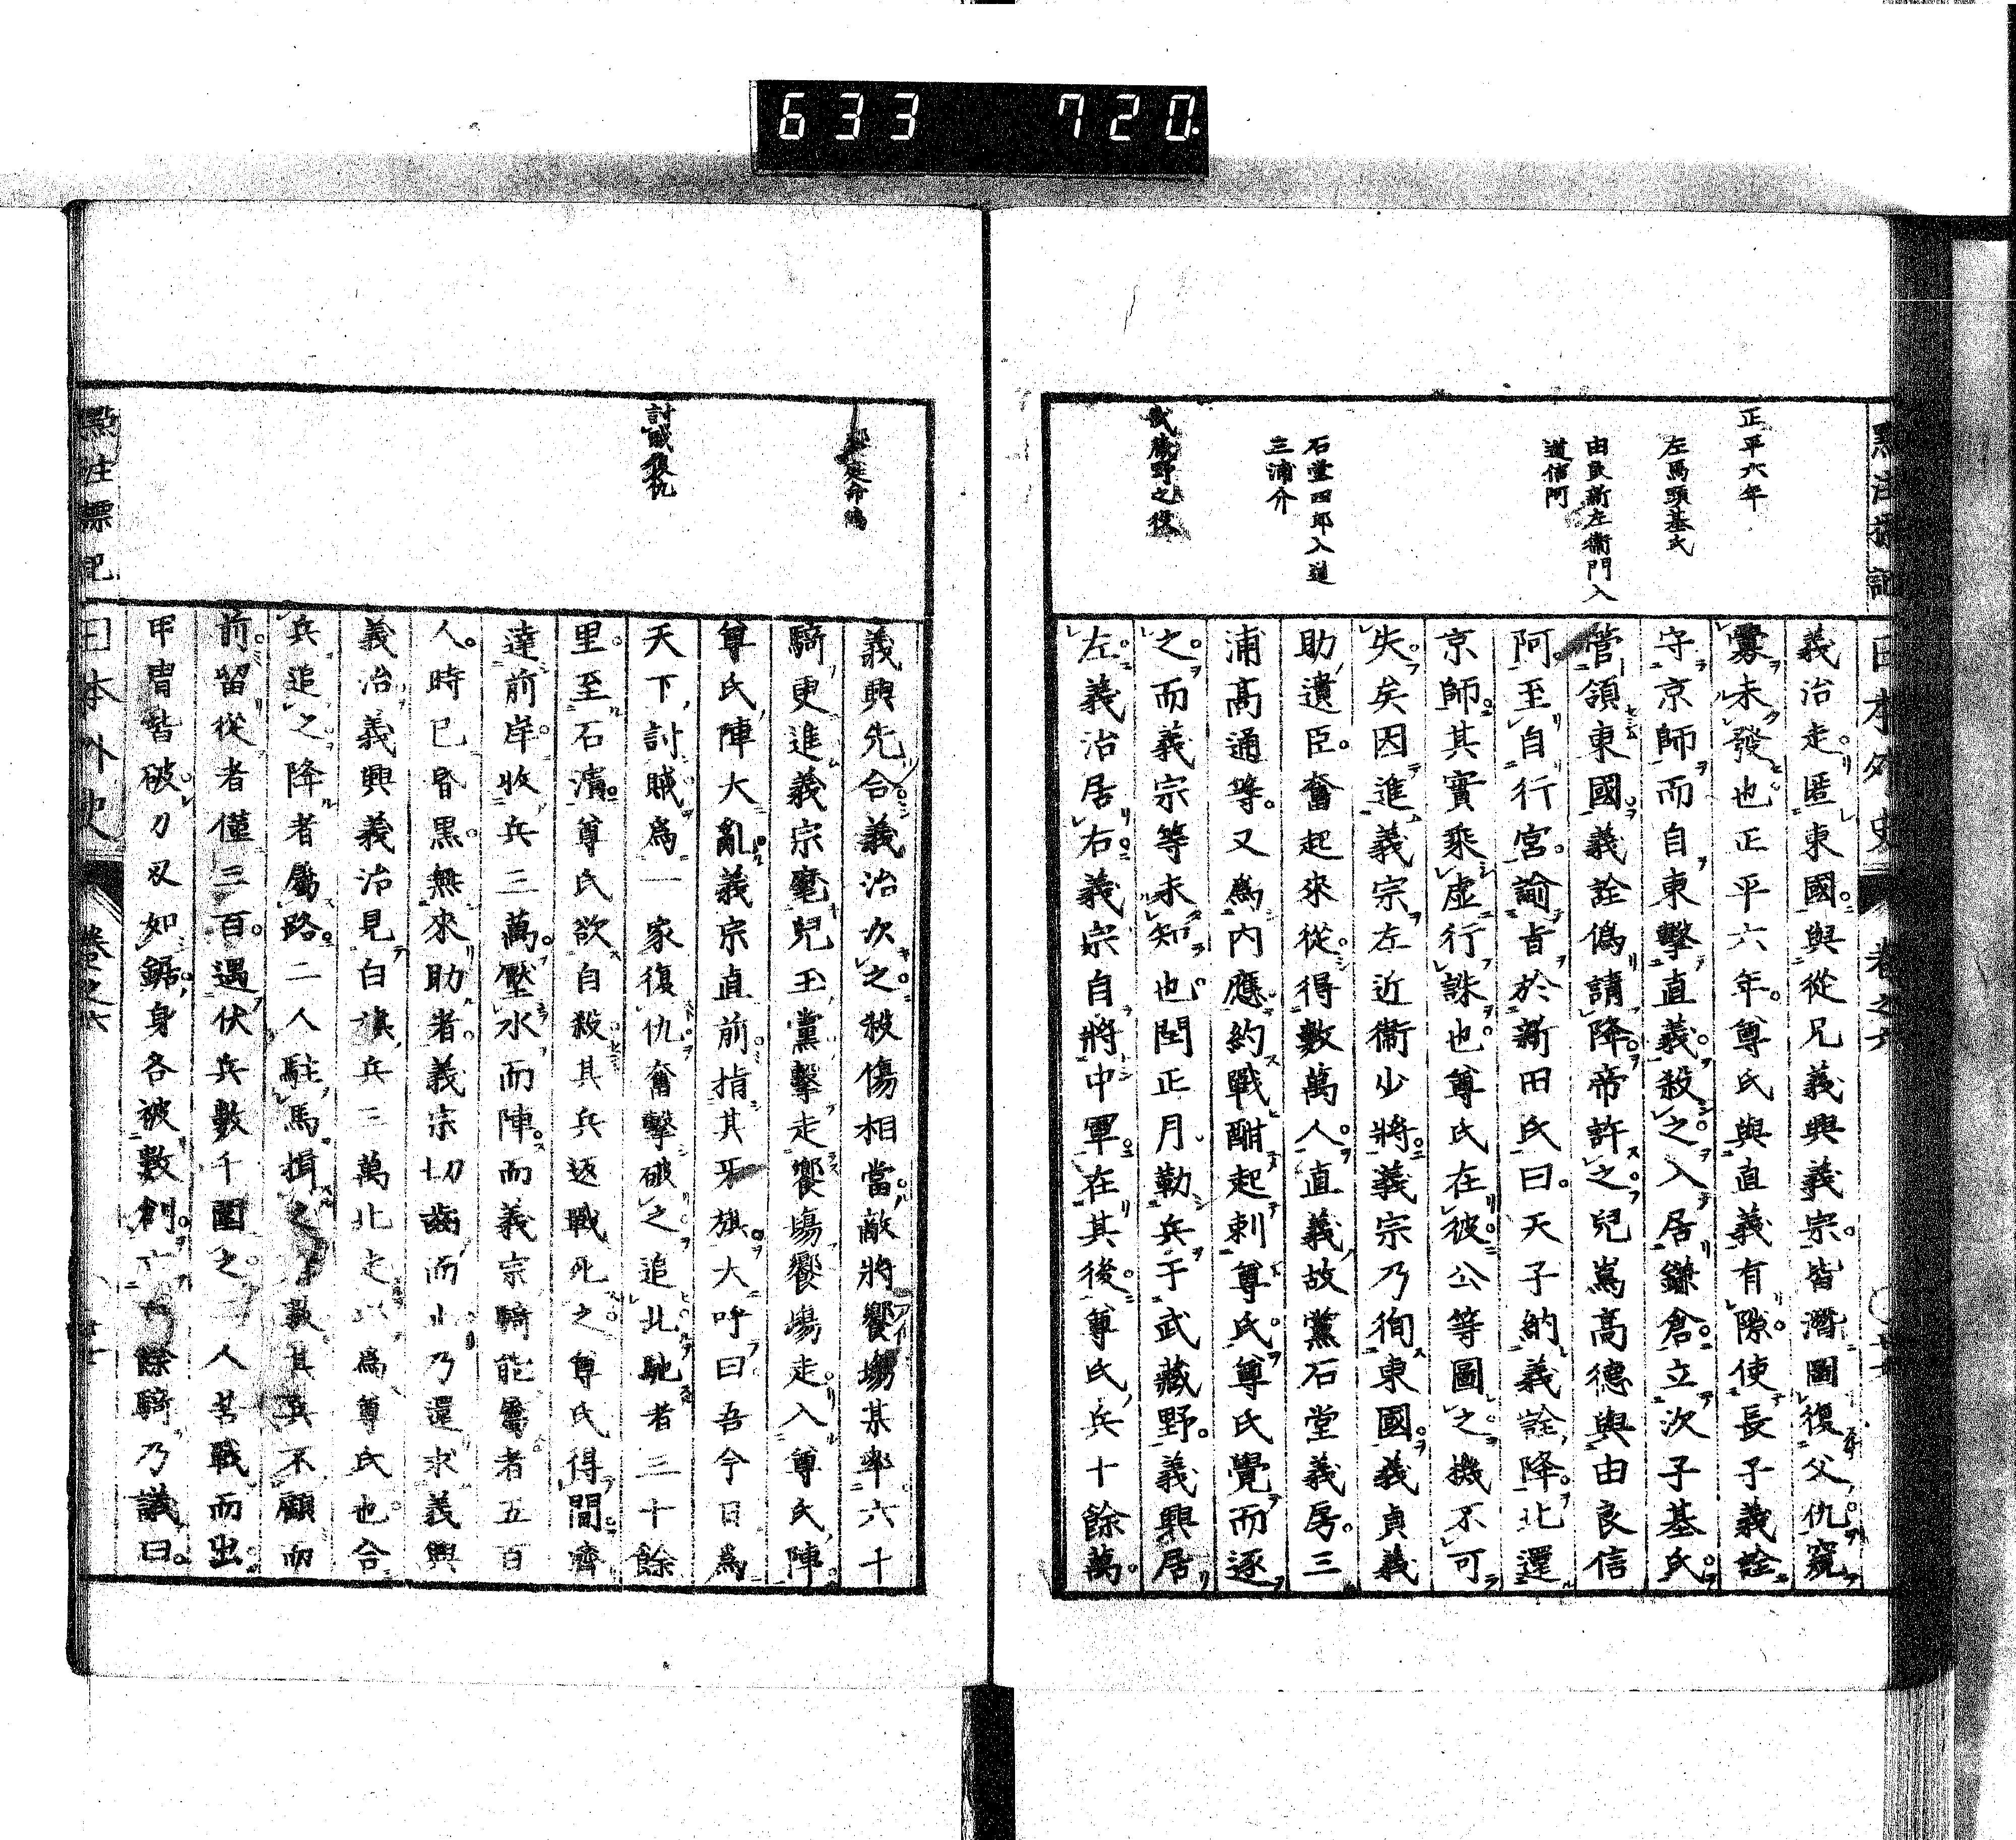 633 720.
點注標記
日本外史 卷之六
正平六年
左馬頭基氏
由良新左衞門入
道信阿
石堂四郎入道
三浦介
武藏野之役
義治走匿東國與從兄義興義宗皆潛圖復父仇窺
釁未發也正平六年尊氏與直義有隙使長子義詮
守京師而自東擊直義殺之入居鎌倉立次子基氏
管領東國義詮僞請降帝許之兒嶌高德與由良信
阿至自行宮諭旨於新田氏曰天子納義詮降北還
京師其實乘虛行誅也尊氏在彼公等圖之機不可
失矣因進義宗左近衞少將義宗乃徇東國義貞義
助遺臣奮起來從得數萬人直義故黨石堂義房三
浦高通等又爲內應約戰酣起刺尊氏尊氏覺而逐
之而義宗等未知也閏正月勒兵于武藏野義興居
左義治居右義宗自將中軍在其後尊氏兵十餘萬
討賊復仇
義興先合義治次之殺傷相當敵將饗塲某率六十
騎更進義宗麾兒玉黨擊走饗塲饗塲走入尊氏陣
尊氏陣大亂義宗直前指其牙旗大呼曰吾今日爲
天下討賊爲一家復仇奮擊破之追北馳者三十餘
里至石濱尊氏欲自殺其兵返戰死之尊氏得間濟
達前岸收兵三萬壓水而陣而義宗騎能屬者五百
人時已昏黑無來助者義宗切齒而止乃還求義興
義治義興義治見白旗兵三萬北走以爲尊氏也合
兵追之降者屬路二人駐馬揖之數其兵不顧而
前留從者僅三百遇伏兵數千圍之二人苦戰而出
甲冑皆破刀刃如鋸身各被數創亡餘騎乃議曰
點注標記
日本外史 卷之六